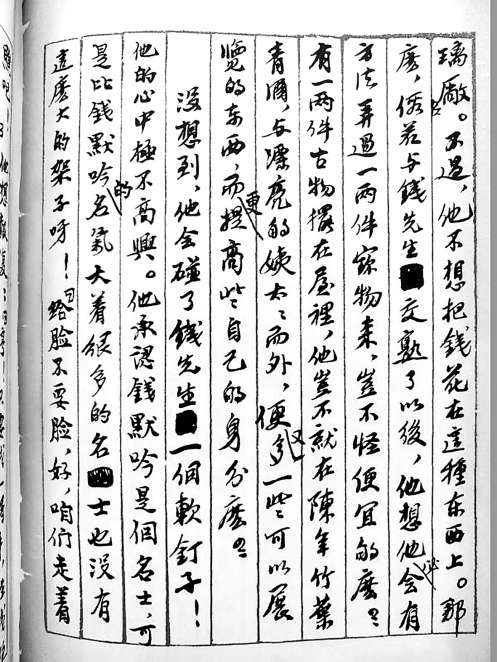 璃廠。不過，他不想把錢花在這種东西上。那
麽，假若与錢先生交熟了以後，他想他必会有
方法弄過一两件寳物来，豈不怪便宜的麽？
有一两件古物擺在屋裡，他豈不就在陳年竹葉
青酒，与漂亮的姨太々而外，便又多一些可以展
覽的东西，而更提高些自己的身分麽？
没想到，他会碰了錢先生一個軟釘子！
他的心中極不高興。他承認錢默吟是個名士，可
是比錢默吟的名氣大着很多的名士也没有
這麽大的架子呀！「给脸不要脸，好，咱们走着